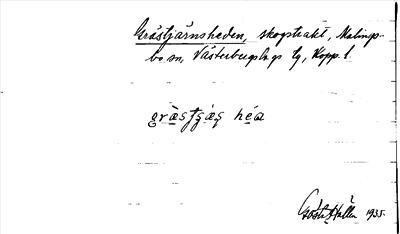 Gråstjärnsheden, skogstrakt, Malings-
bo sn, Västerbergslags tg, Kopp. l.
gràsʃǥæ̣ṣ héa
Gösta Hallén 1935.